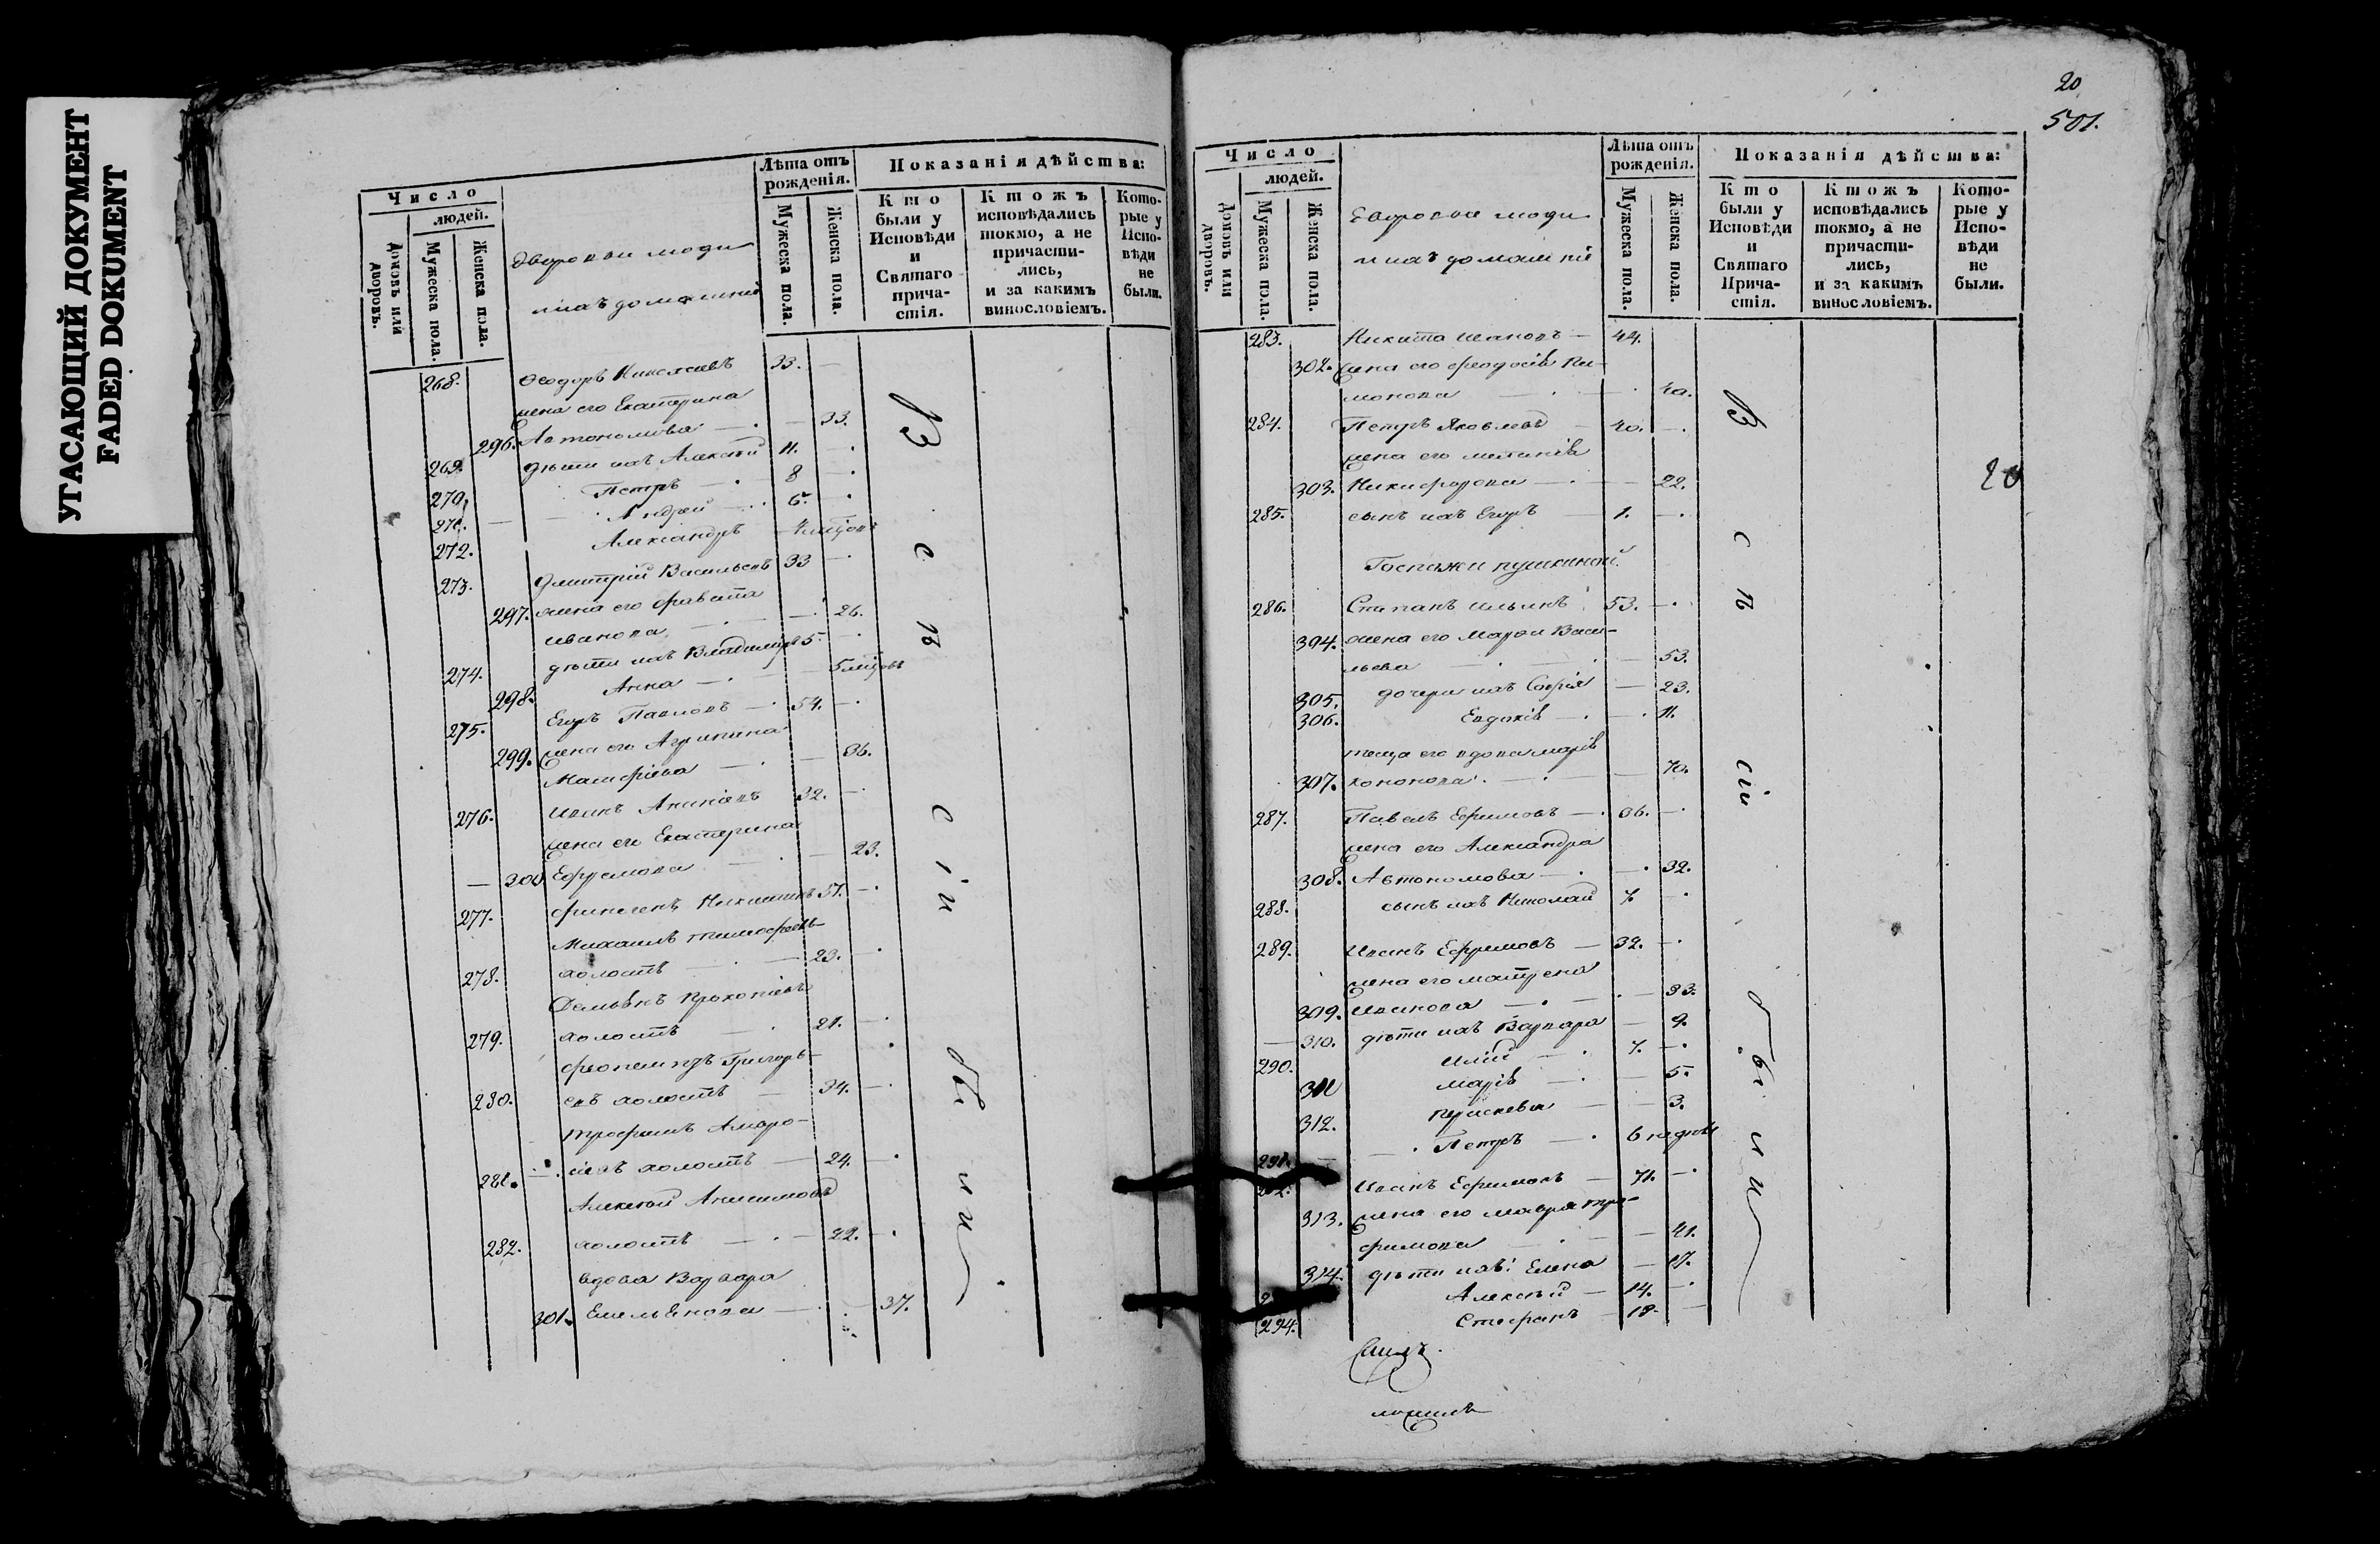 УГАСАЮЩИЙ ДОКУМЕНТ
FADED DOKUMENT
Число
людей.
Домовъ или дворовъ.
Мужеска пола.
Женска пола.
Дворовыи люди
и ихъ домашнии
Лѣта отъ рожденія.
Мужеска пола.
Женска пола.
Показанія дѣйства:
Кто были у Исповѣди и Святаго причастія.
Ктожъ исповѣдались токмо, а не причастились, и за какимъ винословіемъ.
Которые у Исповѣди не были.
268. Ѳеодоръ 33. —
жена его Екатерина
296. Автономова — 33.
269. дѣти ихъ Алексѣй 11.
270. Петръ — 8
271. Андрей — 6.
272. Александръ
273. Димитрій Васильевъ 33 —
297. жена его
Иванова — 26.
274. дѣти ихъ Владимиръ 5.
298. Анна —
275. Егоръ Павловъ — 54.
299. жена его Агрипина
— 36.
276. Иванъ Ананіевъ 32. —
жена его Екатерина
300 Ефремова — 23.
277. 51.
Михаилъ Тимофеевъ
278. холостъ — 23.
Демьянъ Прокопіевъ
279. холостъ — 21.
Григорь-
280. евъ холостъ — 34. —
Трофимъ Амвро-
281. сіевъ холостъ — 24. —
Алексѣй Анисимовъ
282. холостъ — 22.
вдова Варвара
301. Емельянова — 37.
Всѣ
сіи
были
20
501.
Число
людей.
Домовъ или дворовъ.
Мужеска пола.
Женска пола.
Дворовыи люди
и ихъ домашніи
Лѣта отъ рожденія.
Мужеска пола.
Женска пола.
Показанія дѣйства:
Кто были у Исповѣди и Святаго Причастія.
Ктожъ исповѣдались токмо, а не причастились, и за какимъ винословіемъ.
Которые у Исповѣди не были.
283. Никита Ивановъ — 44.
302. жена его Феодосія Ки-
— 40.
284. Петръ Яковлевъ — 40. —
жена его Меланія
303. Никифорова — 22.
285. сынъ ихъ Егоръ — 1. —
Госпожи Пушкиной
286. Степанъ Ильинъ 53. —
304. жена его Марфа Васи-
льева — 53.
305. дочери ихъ Софія — 23.
306. Евдокія — 11.
теща его вдова Марія
307. Кононова — 70.
287. Павелъ Ефимовъ — 36. —
жена его Александра
308. Автономова — 32.
288. сынъ ихъ Николай 7
289. Иванъ Ефремовъ — 32. —
жена его Матрена
309. Иванова — 33.
310. дѣти ихъ Варвара — 9.
290. Илія — 7. —
311 Марія — 5.
312. — 3.
291. Петръ —
Иванъ Ефимовъ — 71. —
313. жена его Мавра Тро-
фимова — 41.
314. дѣти ихъ: Елена — 17.
Алексѣй — 14.
294. Стефанъ — 18. —
Всѣ
сіи
были
20